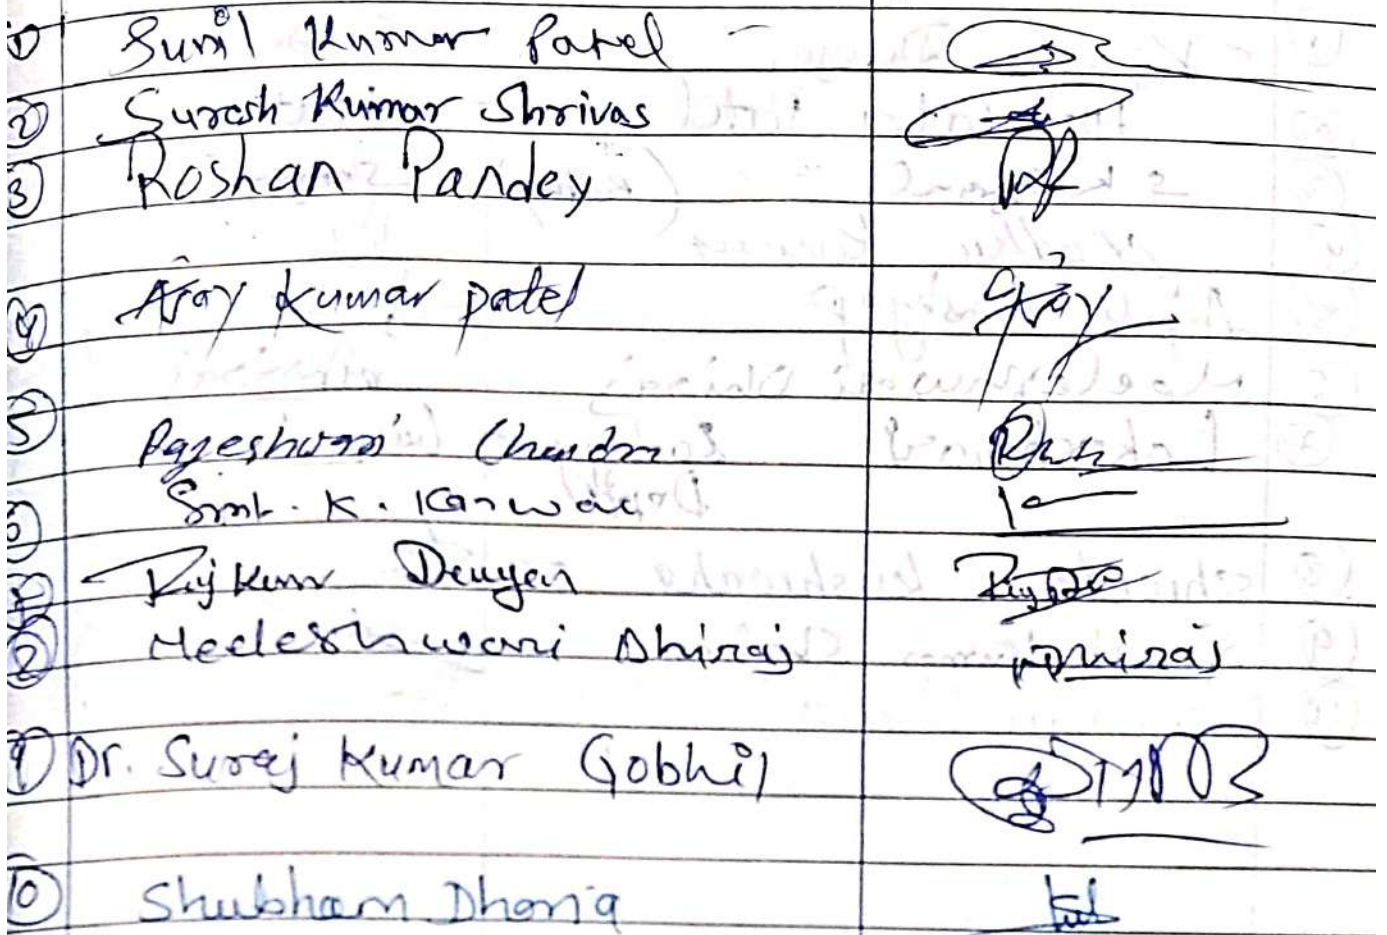 ① Sunil Kumar Patel -
② Suresh Kumar Shrivas
③ Roshan Pandey
④ Ajay Kumar patel Ajay
⑤ Rajeshwari Chandra
⑥ Smt. K. Kanwar
⑦ Rajkumar Dewgen
⑧ Heeleshwari Dhiraj Dhiraj
⑨ Dr. Suraj Kumar Gobhil
⑩ Shubham Dhoria